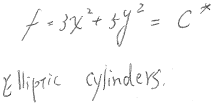 f = 3x² + 5y² = C*
Elliptic cylinders.